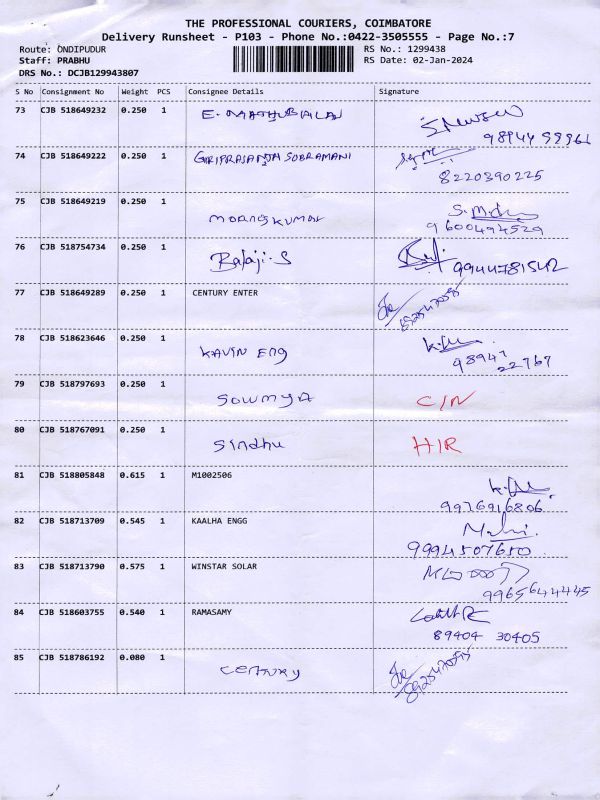 THE PROFESSIONAL COURIERS, COIMBATORE
Delivery Runsheet - P103 - Phone No.:0422-3505555 - Page No.:7
Route: ONDIPUDUR RS No.: 1299438
Staff: PRABHU RS Date: 02-Jan-2024
DRS No.: DCJB129943807
S No Consignment No Weight PCS Consignee Details Signature
73 CJB 518649232 0.250 1 E. MATHUBALAN
74 CJB 518649222 0.250 1 GIRIPRASANTA SOBRAMANI
8220390225
75 CJB 518649219 0.250 1
9600494529
76 CJB 518754734 0.250 1 Balaji-S 9944781542
77 CJB 518649289 0.250 1 CENTURY ENTER
78 CJB 518623646 0.250 1 KAVIN ENG
98947
22767
79 CJB 518797693 0.250 1 SOWMYA C/N
80 CJB 518767091 0.250 1 Sindhu HIR
81 CJB 518805848 0.615 1 M1002506
9976916806
82 CJB 518713709 0.545 1 KAALHA ENGG
9994507650
83 CJB 518713790 0.575 1 WINSTAR SOLAR
9965644445
84 CJB 518603755 0.540 1 RAMASAMY
89404 30405
85 CJB 518786192 0.080 1 century